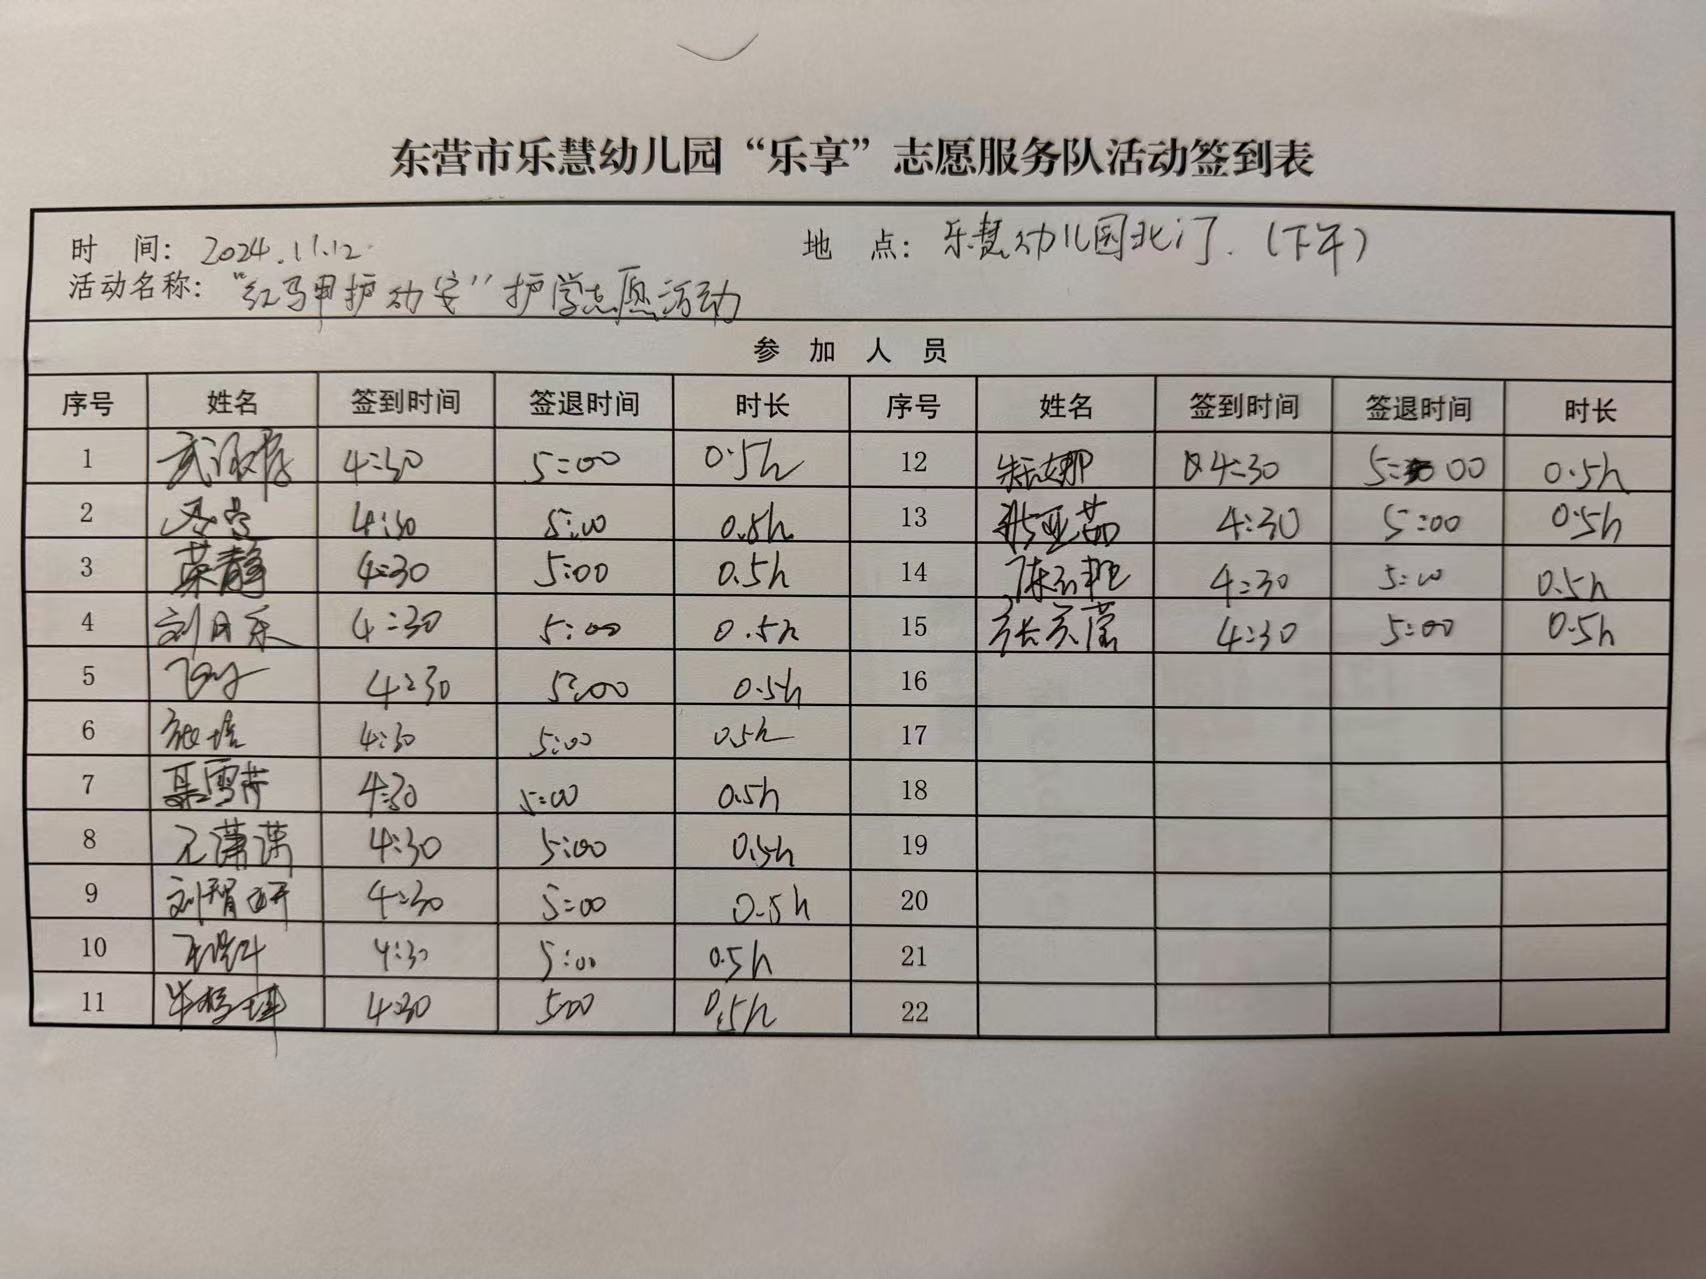 东营市乐慧幼儿园“乐享”志愿服务队活动签到表
时 间: 2024.11.12. 地 点: 乐慧幼儿园北门.(下午)
活动名称: “红马甲护幼安”护学志愿活动
参 加 人 员
序号 姓名 签到时间 签退时间 时长 序号 姓名 签到时间 签退时间 时长
1 4:30 5:00 0.5h 12 4:30 5:00 0.5h
2 4:30 5:00 0.5h 13 张亚茹 4:30 5:00 0.5h
3 荣静 4:30 5:00 0.5h 14 4:30 5:00 0.5h
4 刘月乐 4:30 5:00 0.5h 15 张云莹 4:30 5:00 0.5h
5 4:30 5:00 0.5h 16
6 4:30 5:00 0.5h 17
7 聂雪芹 4:30 5:00 0.5h 18
8 潇潇 4:30 5:00 0.5h 19
9 刘智妍 4:30 5:00 0.5h 20
10 4:30 5:00 0.5h 21
11 4:30 500 0.5h 22